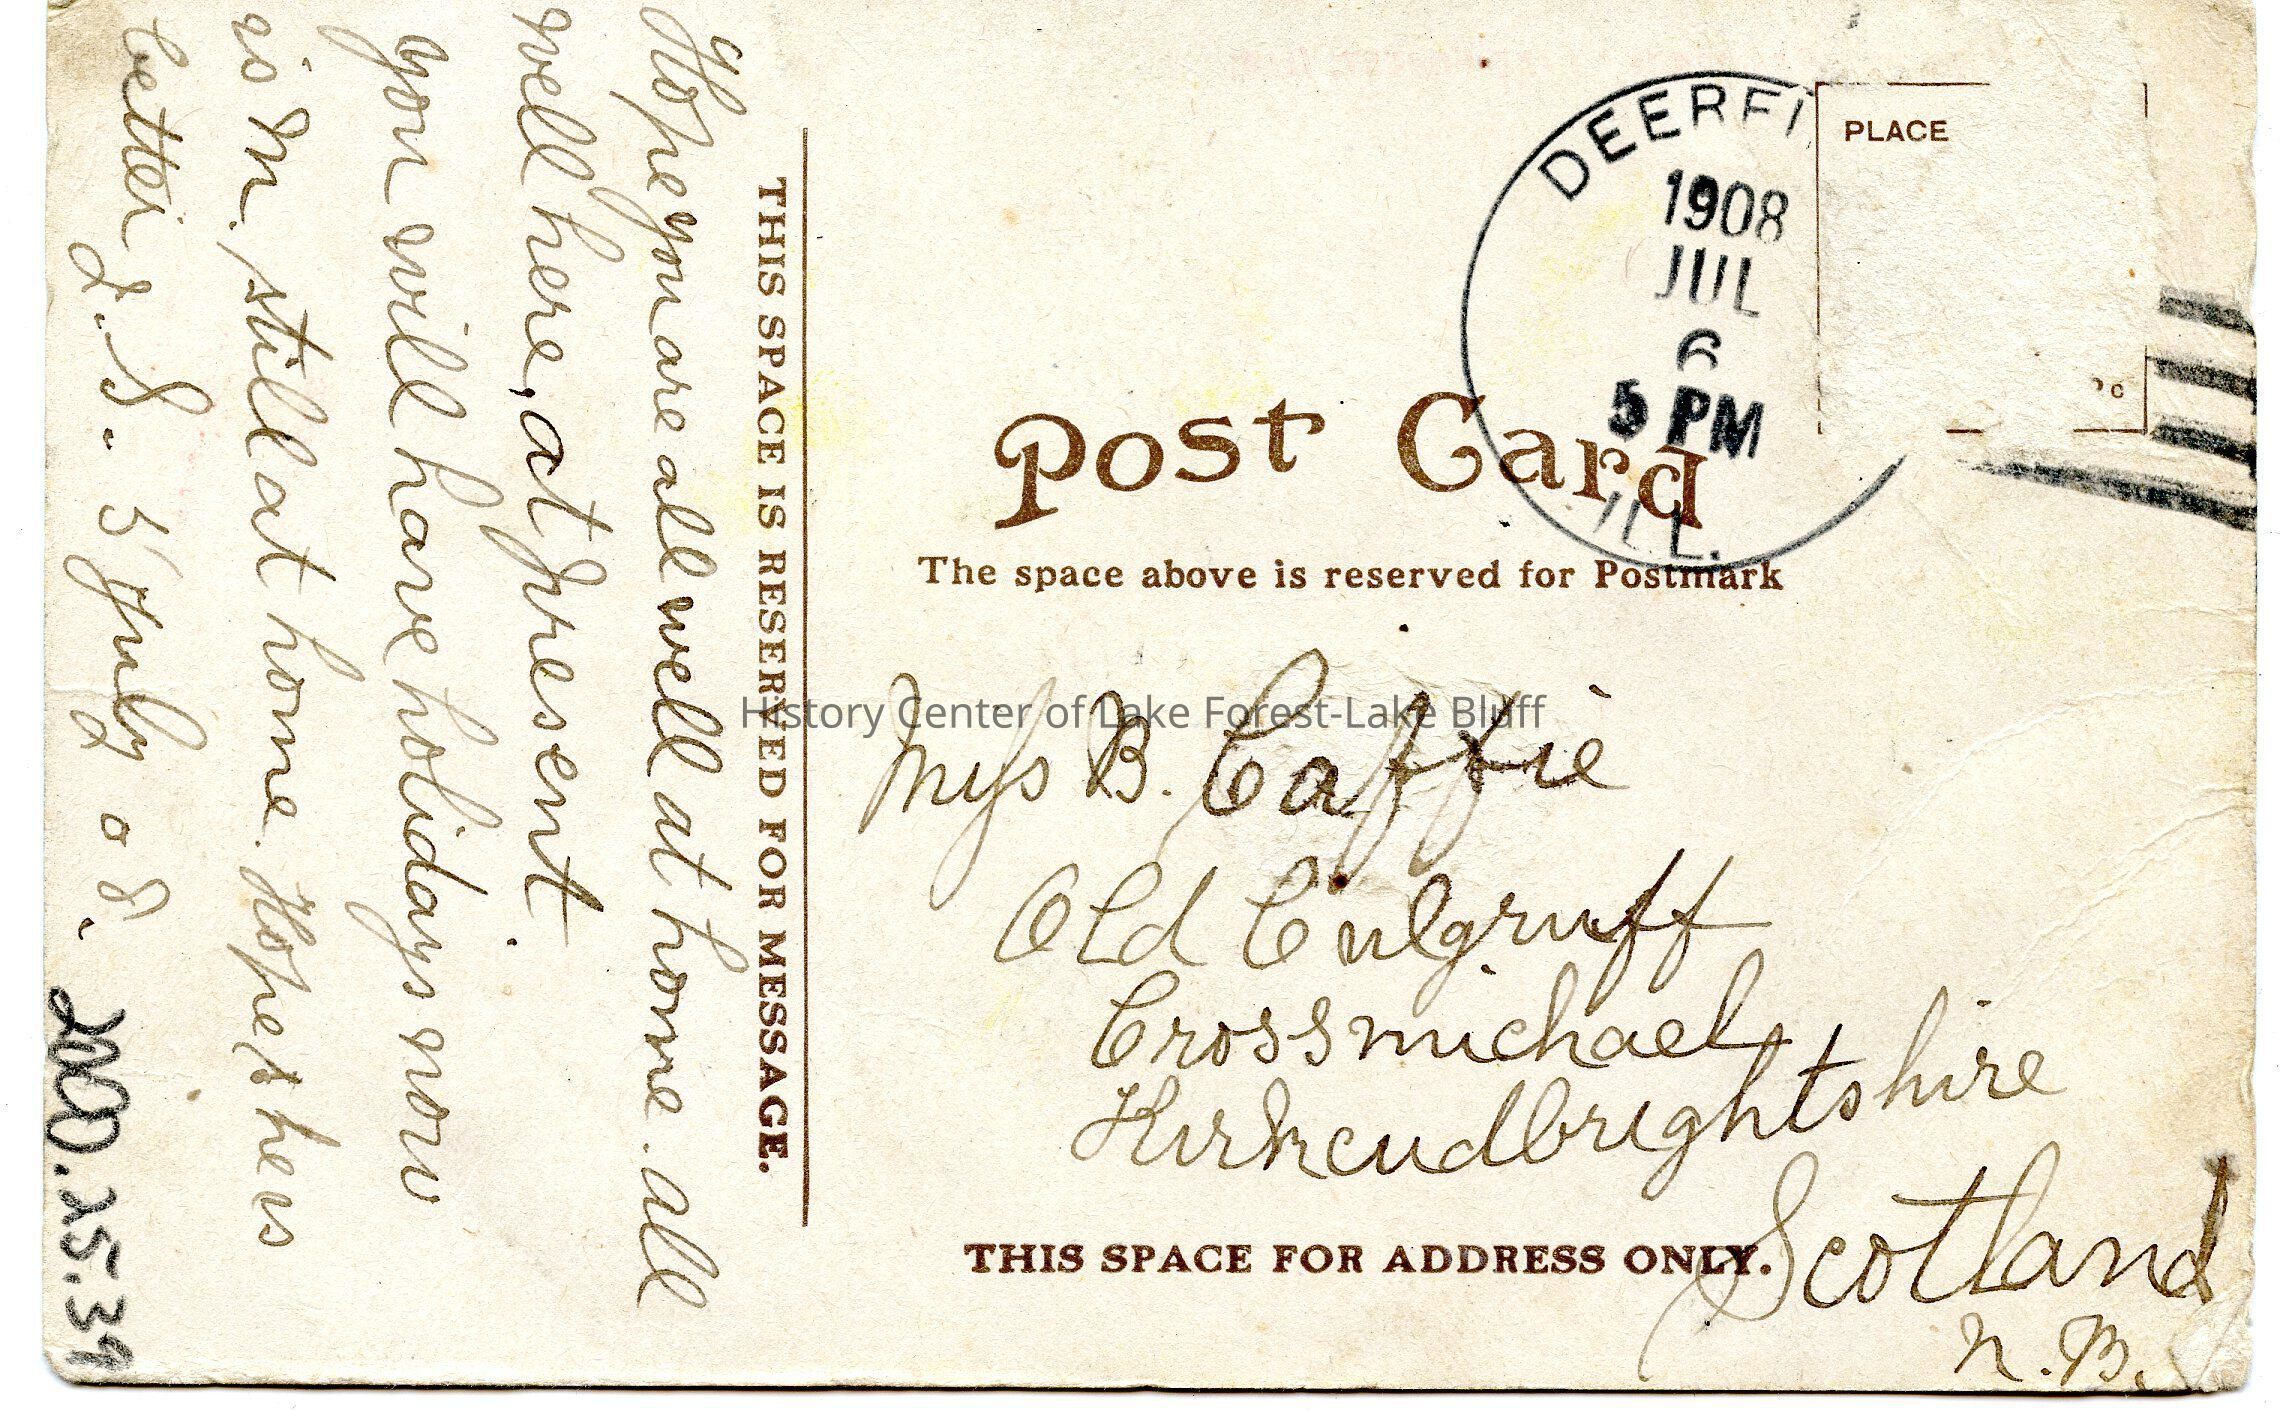 DEERFI
1908
JUL
6
5 PM
ILL.
PLACE
Post Card
The space above is reserved for Postmark
THIS SPACE IS RESERVED FOR MESSAGE.
Hope you are all well at home. all
well here, at present.
you will have holidays now
is M. still at home. Hope hers
better J. S. 5 July 08.
2000.25.39
History Center of Lake Forest-Lake Bluff
Miss B. Caffie
Old Culgruff
Crossmichael
Kirkcudbrightshire
Scotland
N.B.
THIS SPACE FOR ADDRESS ONLY.